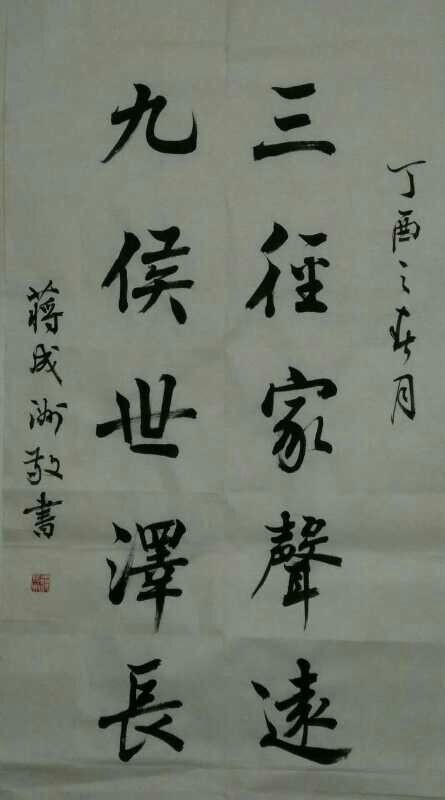 丁酉之春月
三徑家聲遠
九侯世澤長
蔣成洲敬書